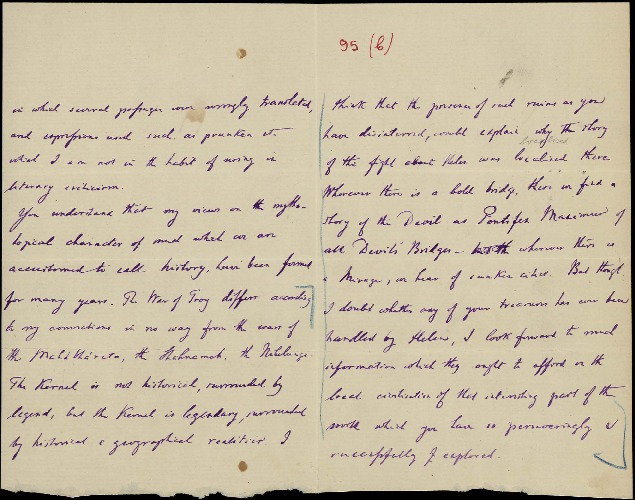 95 (6)
in which several passages were wrongly translated,
and expressions used such as
which I am not in the habit of using in
literary criticism.
You understand that my views on the mytho-
logical character of much which we are
accustomed to call history, have been formed
for many years. The War of Troy differs according
to my convictions in no way from the wars of
the Mahâbhârata, the Shahnameh, the Nibelunge.
The Kernel is not historical, surrounded by
legend, but the Kernel is legendary, surrounded
by historical & geographical realities I
think that the presence of such ruins as you
have disinterred, would explain why the story
of the fight about Helen was localised there
Wherever there is a bold bridge, there we find a
story of the Devil as Pontifex Maximus of
all Devil's Bridges - wherever there is
a Mirage, we hear of sunken cities. But though
I doubt whether any of your treasures has ever been
handled by Helen, I look forward to much
information which they ought to afford on the
local civilisation of that interesting part of the
world which you have so perseveringly &
successfully explored.